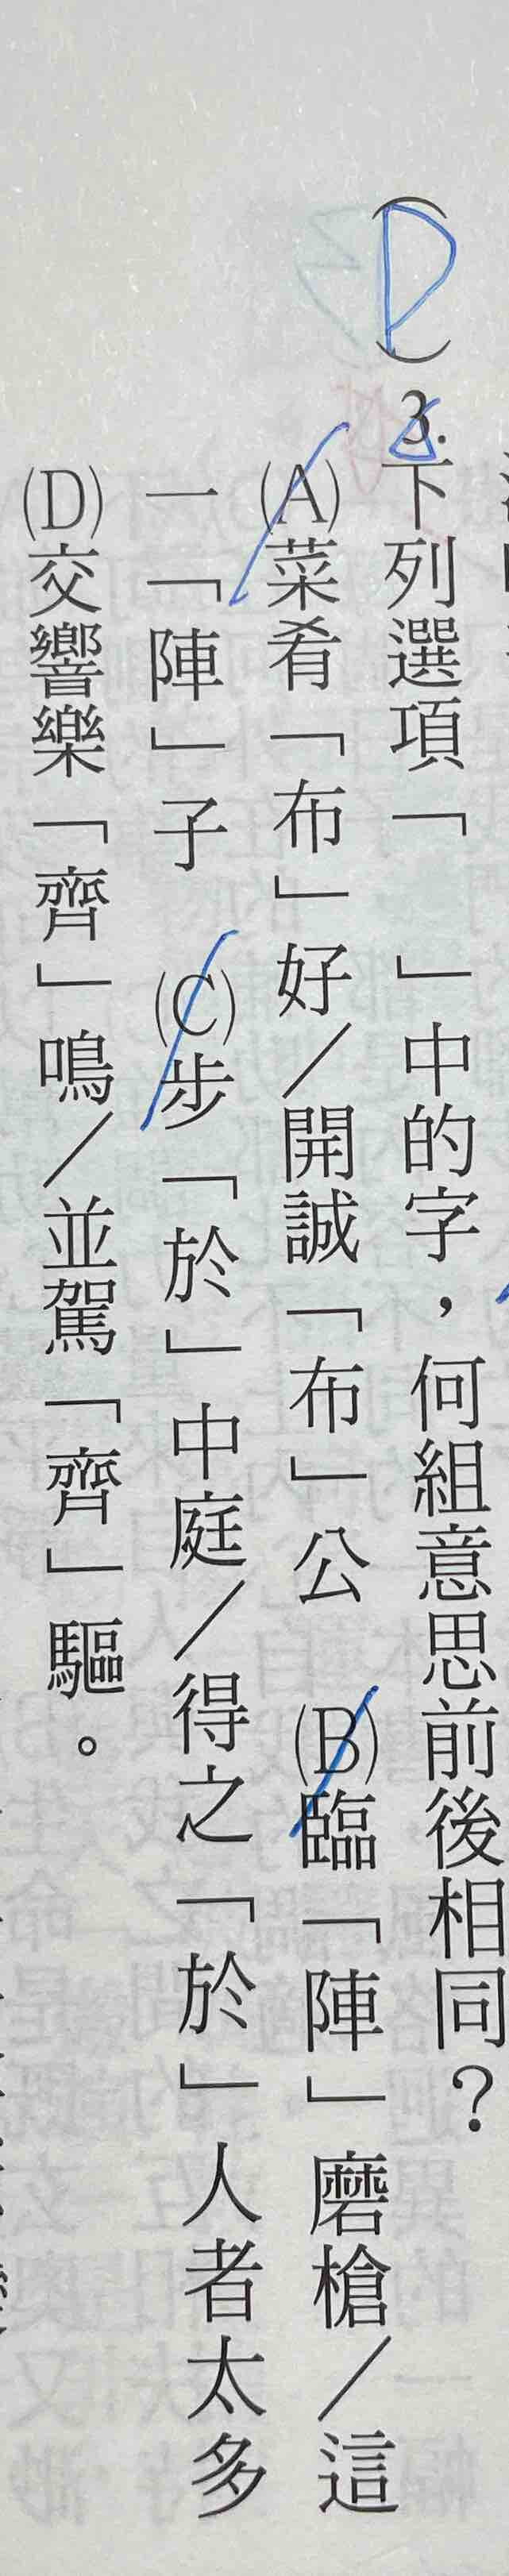 (D) 3.下列選項「　」中的字，何組意思前後相同？
(A)菜肴「布」好／開誠「布」公　(B)臨「陣」磨槍／這
一「陣」子　(C)步「於」中庭／得之「於」人者太多
(D)交響樂「齊」鳴／並駕「齊」驅。